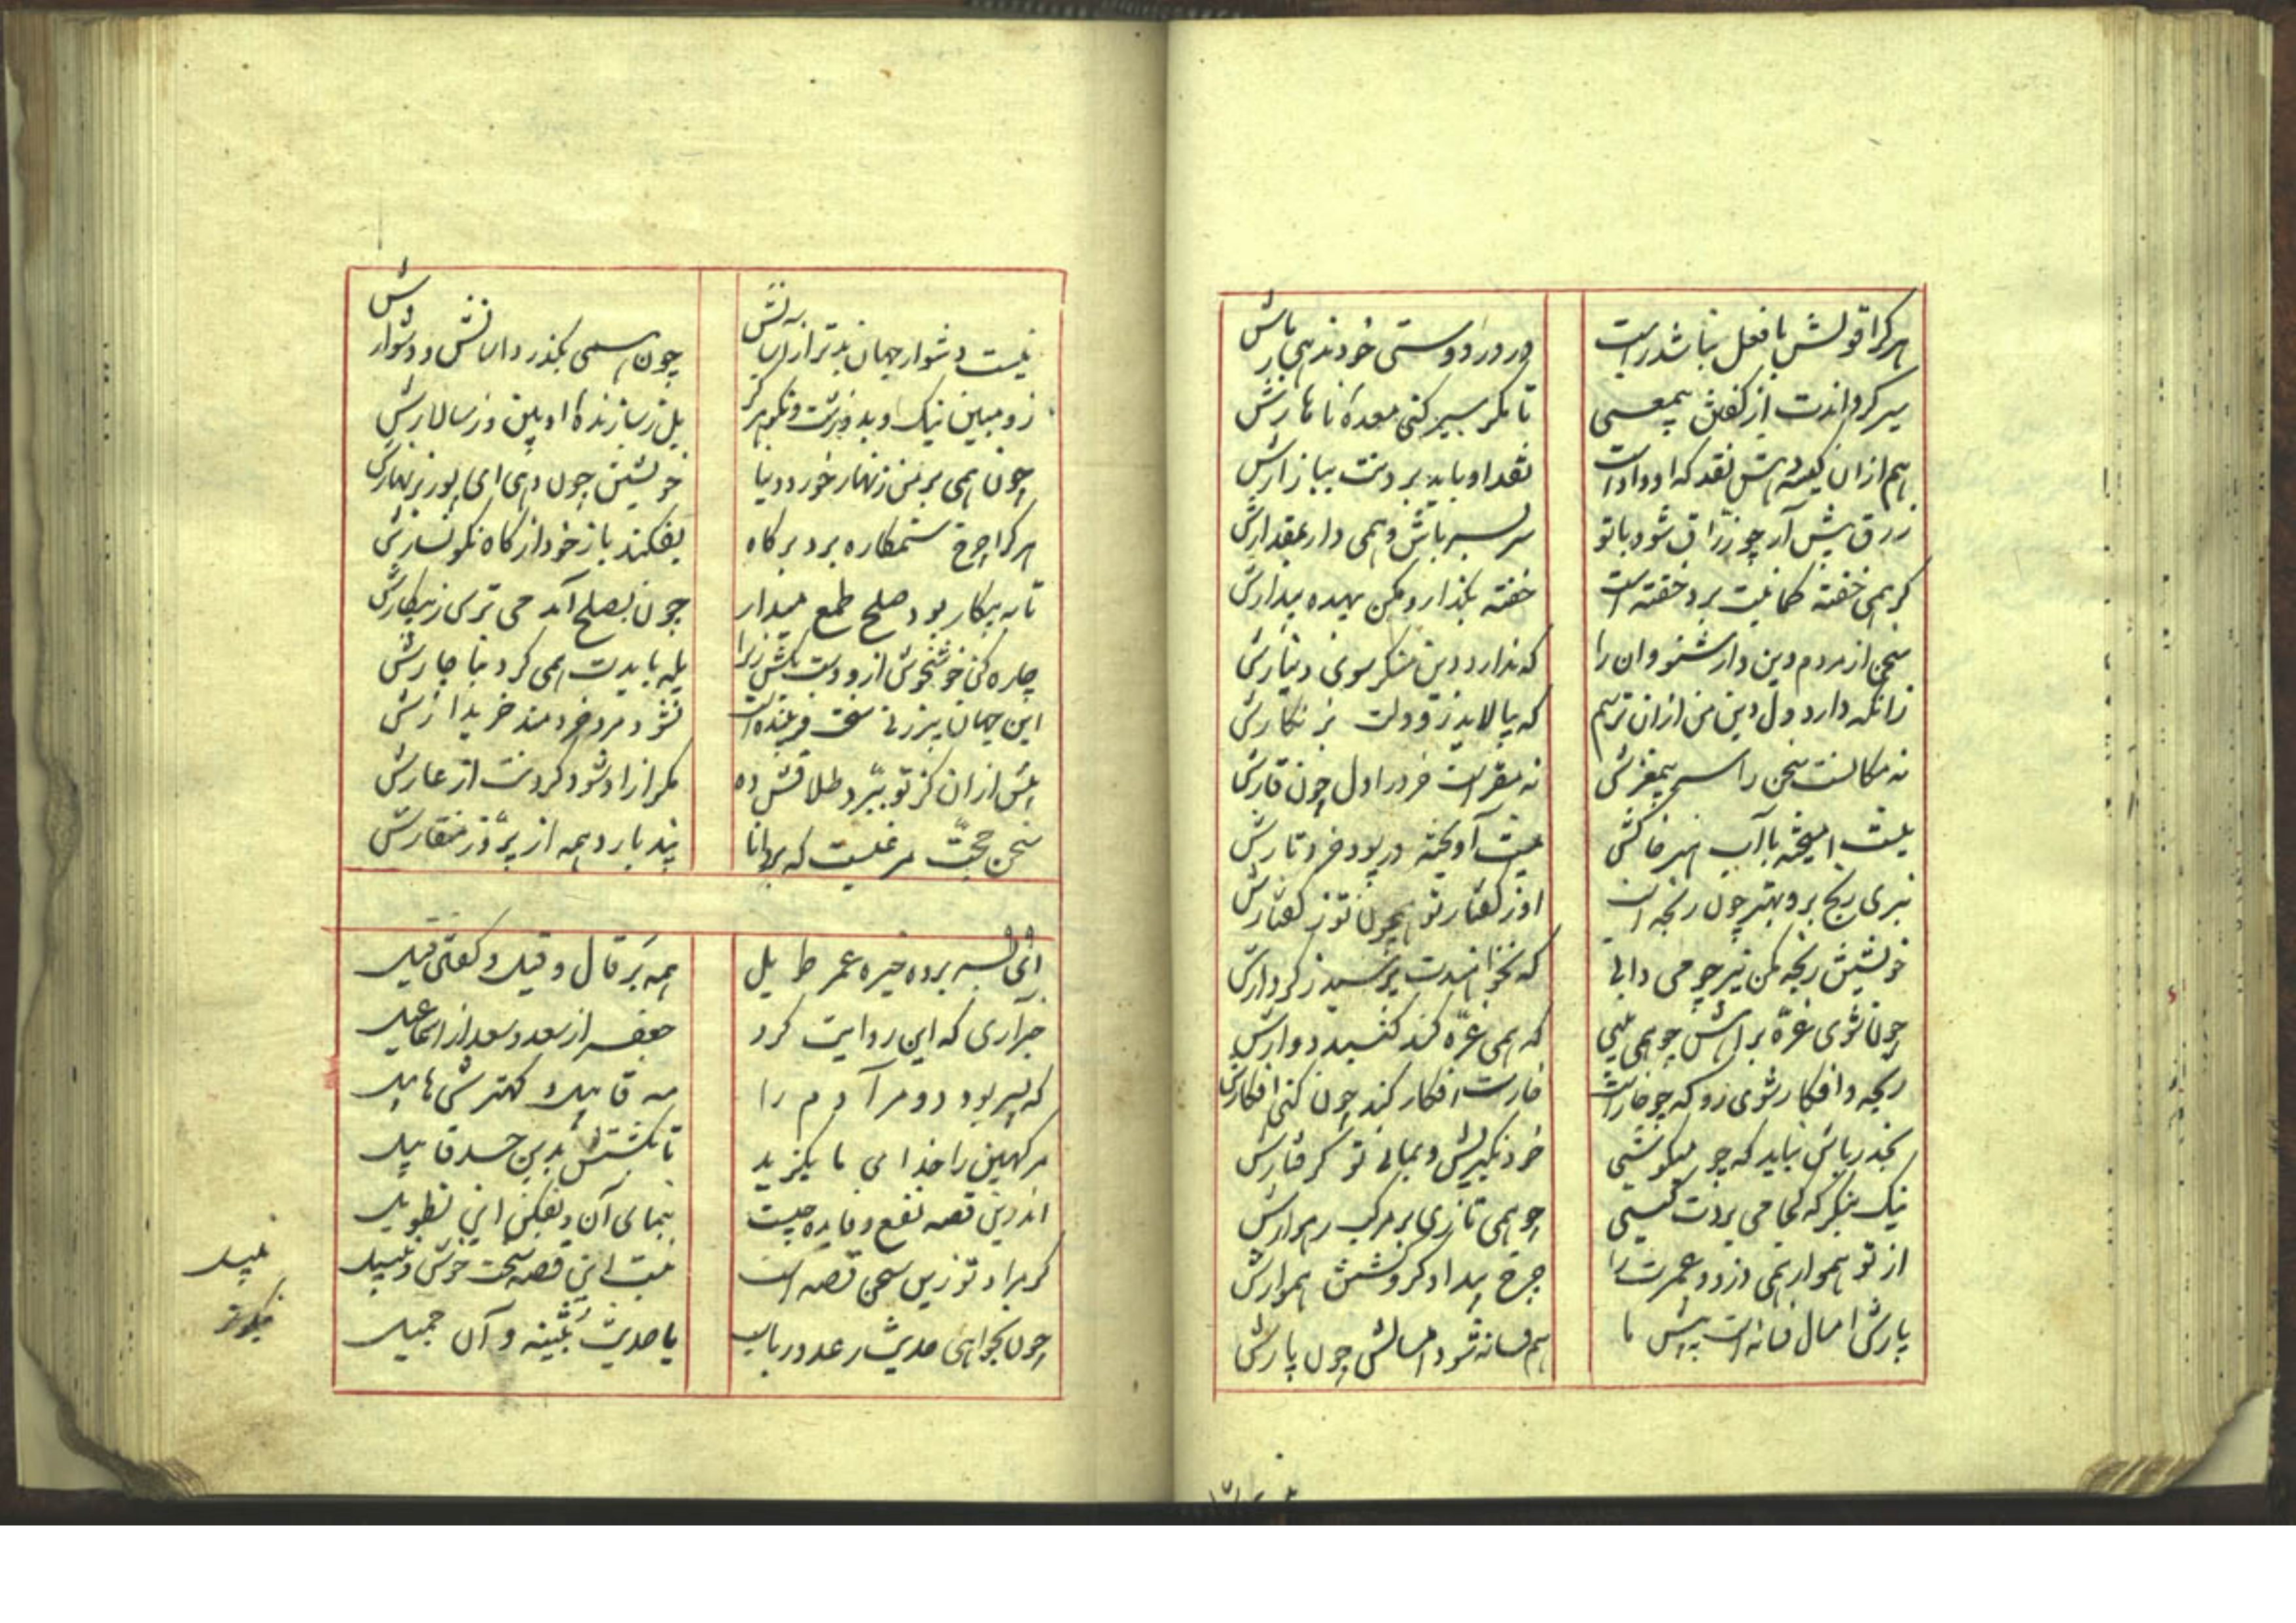 هرکرا قولش با فعل نباشد راست
در در دوستی خود ندهی بارش
سیر کرداندت از گفتن بیمعنی
تا مگر سیر کنی معدهٔ ناهارش
هم ازان کیسه دهش نقد که او دادت
نقد او باید بردنت ببازارش
زرق پیش آر چو زرّاق شود با تو
سر بسر باش و همی دار بمقدارش
گر همی خفته گمانیت برد خفته است
خفته بگذار و مکن بیهده بیدارش
سخن از مردم دین دار شنو وان را
که ندارد دین منگر سوی دینارش
زانکه دارد ول دین من ازان ترسم
که بیالاید زو دلت بزنگارش
نه مکانست سخن را سر بیمغزش
نه مقر است خرد را دل چون قارش
نیست امیخته با آب هنر خاکش
نیست آویخته در پود خرد تارش
نبری رنج برو بهتر چون رنجه است
او ز گفتار تو همچون تو ز گفتارش
خویشتن رنجه مکن نیز چو می دانی
که نخواهندت پرسید ز کردارش
چون شوی غرّه براهش چو همی بینی
که همی غرّه کند گنبد دوارش
رنجه و افکار شوی زو که چو خارست
خارت افکار کند چون کنی افکارش
بحذر باش نباید که چو میکوشی
خود نگیریش و بمانی تو گرفتارش
نیک بنگر که کجا می بردت گیتی
چو همی تازی بر مرکب رهوارش
از تو هموار همی دزدد عمرت را
چرخ بیداد گر و گشتن هموارش
پارش امسال فسانه است به پیش ما
هم فسانه شود امسالش چون پارش
نیست دشوار جهان بدتر از آسانش
چون همی بگذرد آسانش و دشوارش
زو مبین نیک و بد و زشت و نکو هرگز
چون همی بر من زنهار خورد دنیا
خویشتن چون دهی ای پور بزنهارش
هرکرا چرخ ستمکاره برد برگاه
بفکند باز خود از گاه نگونسارش
تا به پیکار بود صلح طمع میدار
چون بصلح آمد می ترس ز پیکارش
چاره کن خوش خوش ازو دست بکش زیرا
یله بایدت همی کرد بناچارش
این جهان پیر زنی سخت فریبنده است
نشود مرد خردمند خریدارش
پیش ازان کز تو ببرد طلاقش ده
مگر آزاد شود گردنت از عارش
سخن حجّت مرغیست که بردانا
پند بارد همه از پرّ و ز منقارش
ای بسر برده خیره عمر طویل
همه بر قال و قیل و گفتی قیل
خبر آری که این روایت کرد
جعفر از سعد و سعد از اسماعیل
که پسر بود دو مر آدم را
مه قابیل و کهترش هابیل
مر کهین را خدای ما بگزید
تا بکشتش بدین حسد قابیل
اندرین قصه نفع و فایده چیست
بنمای آن و بفکن این تطویل
گر مراد تو زین سخن قصه است
نیست این قصه سخت خوش و نبیل
چون نخواهی حدیث رعد و رباب
یا حدیث بثینه و آن جمیل
نبیل
نیکوتر